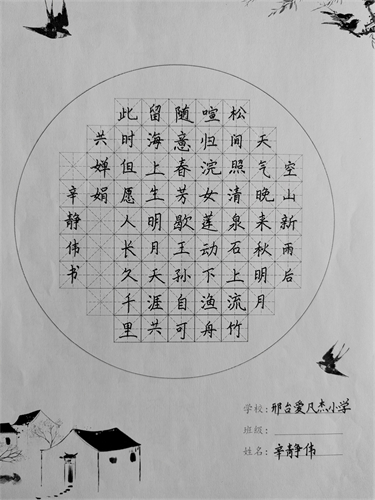 空山新雨后
天气晚来秋明月
松间照清泉石上流竹
喧归浣女莲动下渔舟
随意春芳歇王孙自可
留海上生明月天涯共
此时但愿人长久千里
共婵娟
辛静伟书
学校:邢台爱凡杰小学
班级:
姓名:辛静伟